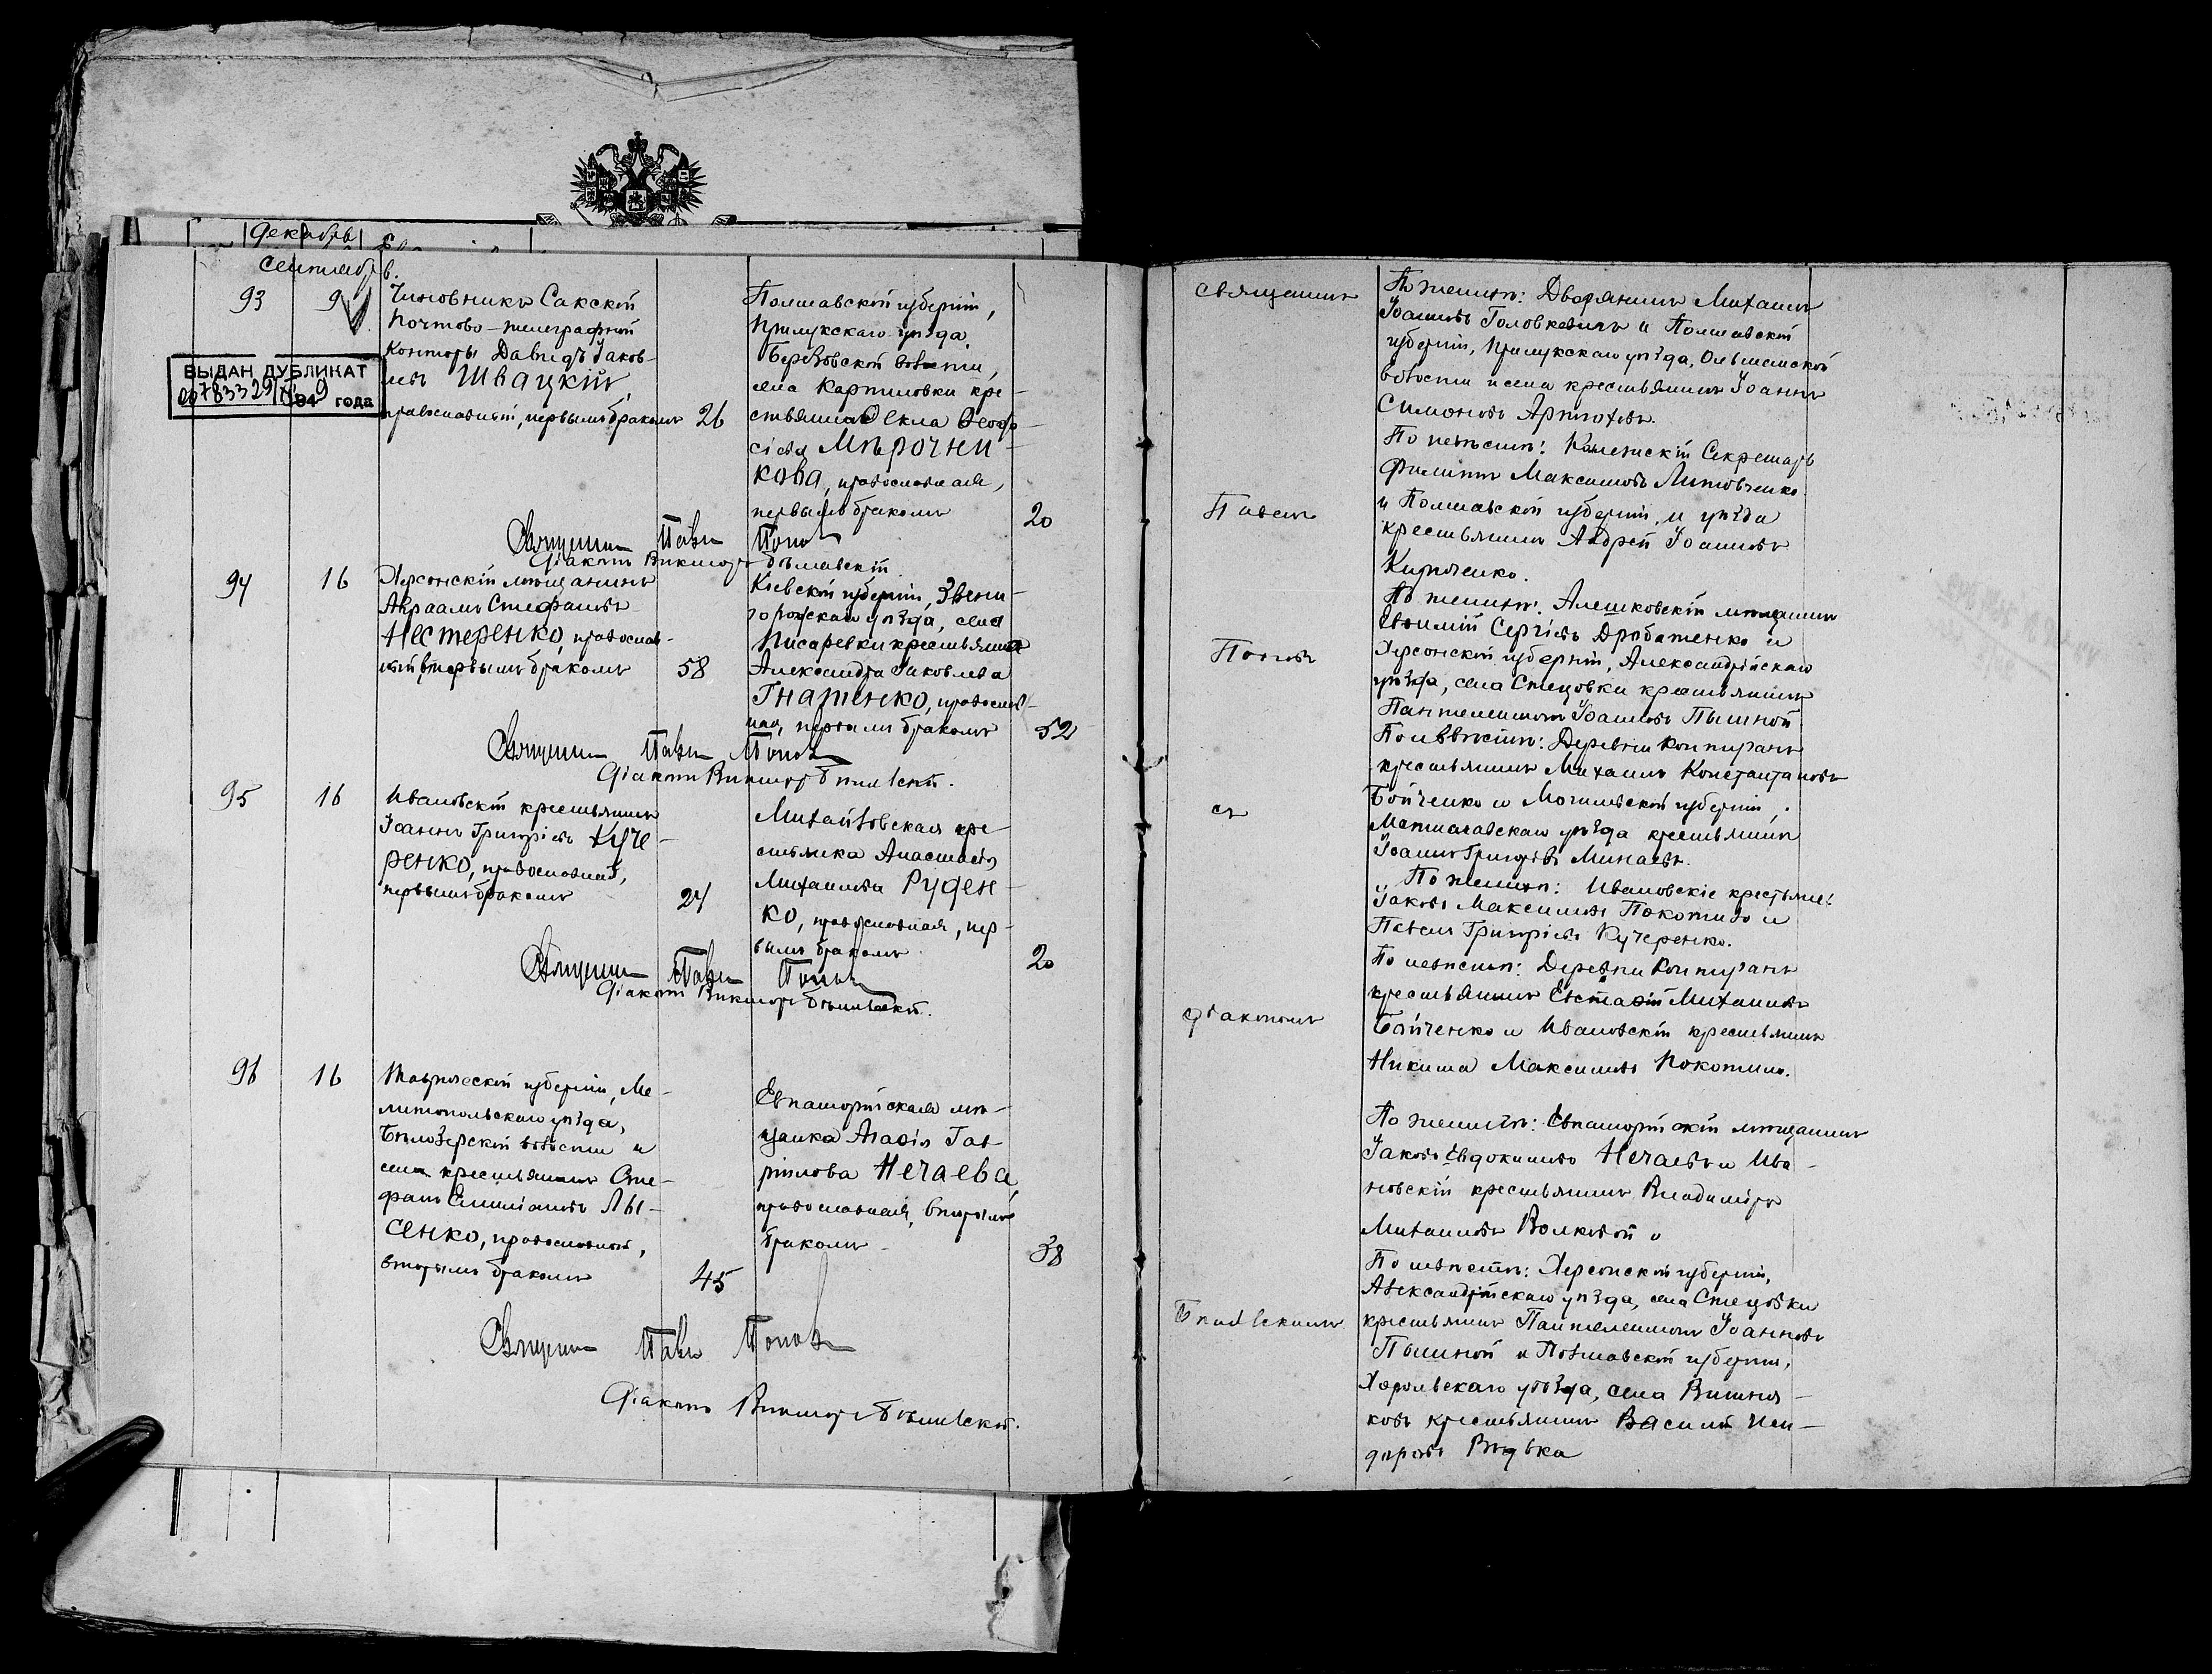 Декабрь
Сентябрь.
93
9
Чиновникъ Сакской
Почтово-телеграфной
Конторы Давидъ Іаков-
левъ Швацкій,
православный, первымъ бракомъ
26
ВЫДАН ДУБЛИКАТ
194 9 года
Полтавской губерніи,
Прилукскаго уѣзда,
Березовской волости,
села Карпиловки кре-
стьянка Ѳекла Ѳеоф-
Мѣрочни-
кова, православная,
первымъ бракомъ
20
Священникъ Павелъ Поповъ
Діаконъ Викторъ
94
16
Херсонскій мѣщанинъ
Авраамъ Стефановъ
Нестеренко, православ-
ный, вторымъ бракомъ
58
Кіевской губерніи, Звени-
городскаго уѣзда, села
Писаревки крестьянка
Александра Іаковлева
Гнатенко, православ-
ная, первымъ бракомъ
52
Священникъ Павелъ Поповъ
Діаконъ Викторъ
95
16
Ивановскій крестьянинъ
Іоаннъ Григоріевъ Куче-
ренко, православный,
первымъ бракомъ
24
Михайловская кре-
стьянка Анастасія
Михаилова Руден-
ко, православная, пер-
вымъ бракомъ
20
Священникъ Павелъ Поповъ
Діаконъ Викторъ
96
16
Таврической губерніи, Ме-
литопольскаго уѣзда,
Бѣлозерской волости и
села крестьянинъ Сте-
фанъ Емиліановъ Лы-
сенко, православный,
вторымъ бракомъ
45
Евпаторійская мѣ-
щанка Агаѳія Гав-
ріилова Нечаева,
православная, вторымъ
бракомъ
38
Священникъ Павелъ Поповъ
Діаконъ Викторъ
Священникъ
Павелъ
Поповъ
съ
діакономъ
По женихѣ: Дворянинъ Михаилъ
Іоанновъ Головкевичъ и Полтавской
губерніи, Прилукскаго уѣзда, Ольшанской
волости и села крестьянинъ Іоаннъ
Симоновъ Артюховъ.
По невѣстѣ: Коллежскій Секретарь
Филиппъ Максимовъ Литовченко
и Полтавской губерніи и уѣзда
крестьянинъ Андрей Іоанновъ
Кириченко.
По женихѣ: Алешковскій мѣщанинъ
Евѳимій Сергіевъ Дробатенко и
Херсонской губерніи, Александрійскаго
уѣзда, села Стецовки крестьянинъ
Пантелеимонъ Іоанновъ Пышной
По невѣстѣ: Деревни Контуганъ
крестьянинъ Михаилъ Константиновъ
Бойченко и Могилевской губерніи,
Мстиславскаго уѣзда крестьянинъ
Іоаннъ Григорьевъ Минаевъ.
По женихѣ: Ивановскіе крестьяне:
Іаковъ Максимовъ Покотило и
Павелъ Григоріевъ Кучеренко.
По невѣстѣ: Деревни Контуганъ
крестьянинъ Евстафій Михаиловъ
Бойченко и Ивановскій крестьянинъ
Никита Максимовъ Покотило.
По женихѣ: Евпаторійскій мѣщанинъ
Іаковъ Евдокимовъ Нечаевъ и Ива-
новскій крестьянинъ Владиміръ
Михаиловъ Волковой и
По невѣстѣ: Херсонской губерніи,
Александрійскаго уѣзда, села Стецовки
крестьянинъ Пантелеимонъ Іоанновъ
Пышной и Полтавской губерніи,
Хорольскаго уѣзда, села Вишня-
ковъ крестьянинъ Василій Иси-
доровъ Редька